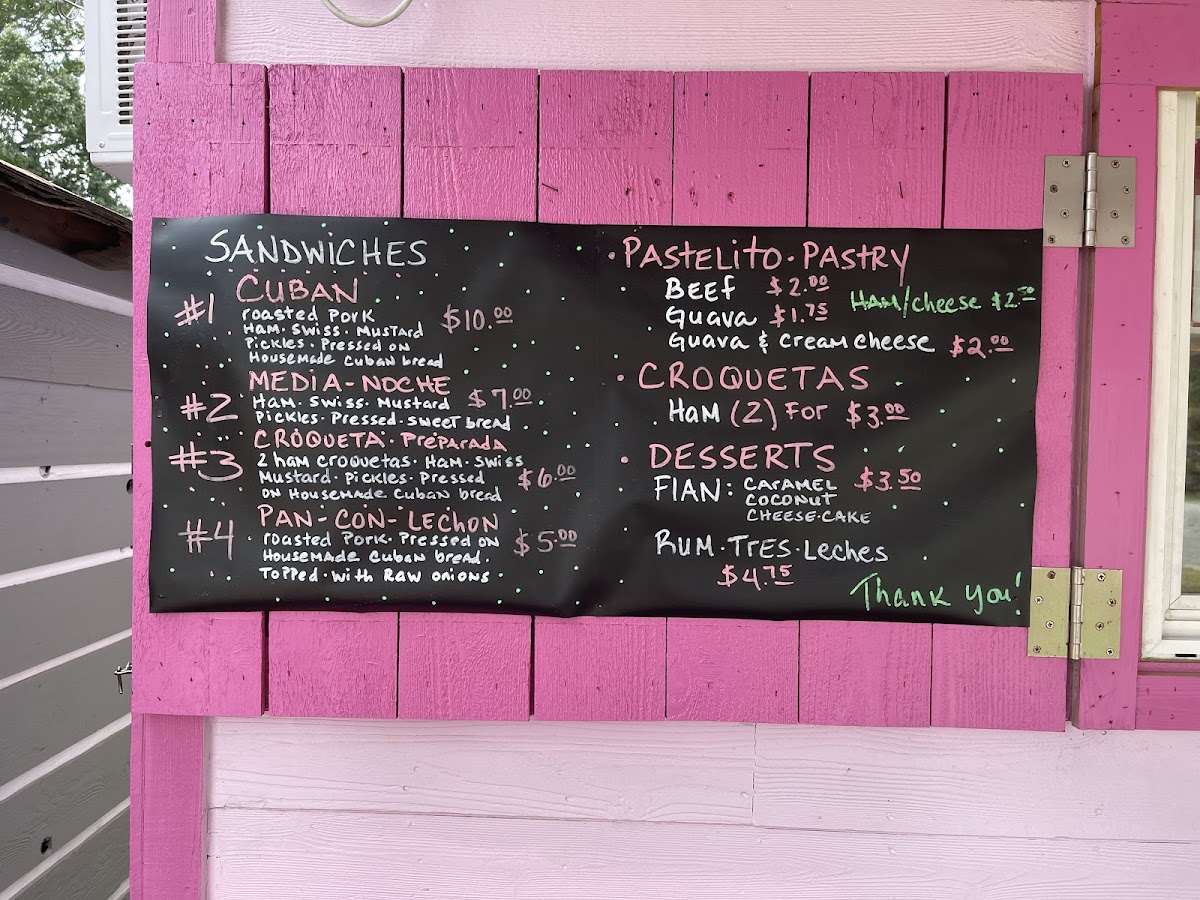 SANDWICHES
#1 CUBAN
roasted Pork
HAM · SWISS · MUSTARD $10.00
PICKLES · Pressed on
HOUSEMADE CUBAN bread
#2 MEDIA-NOCHE
HAM · SWISS · MUSTARD $7.00
PICKLES · Pressed · SWEET bread
#3 CROQUETA · PrepArada
2 HAM CROQUETAS · HAM · SWISS
MUSTARD · PICKLES · Pressed $6.00
ON HOUSEMADE CUBAN bread
#4 PAN-CON-LECHON
roasted Pork · Pressed ON $5.00
HOUSEMADE CUBAN bread ·
TOPPED · WITH RAW ONIONS
· PASTELITO · PASTRY
BEEF $2.00
HAM/cheese $2.50
Guava $1.75
Guava & Cream cheese $2.00
· CROQUETAS
HAM (2) FOR $3.00
· DESSERTS
FlAN: CARAMEL $3.50
COCONUT
CHEESE·CAKE
RUM · TRES · Leches
$4.75
Thank you!